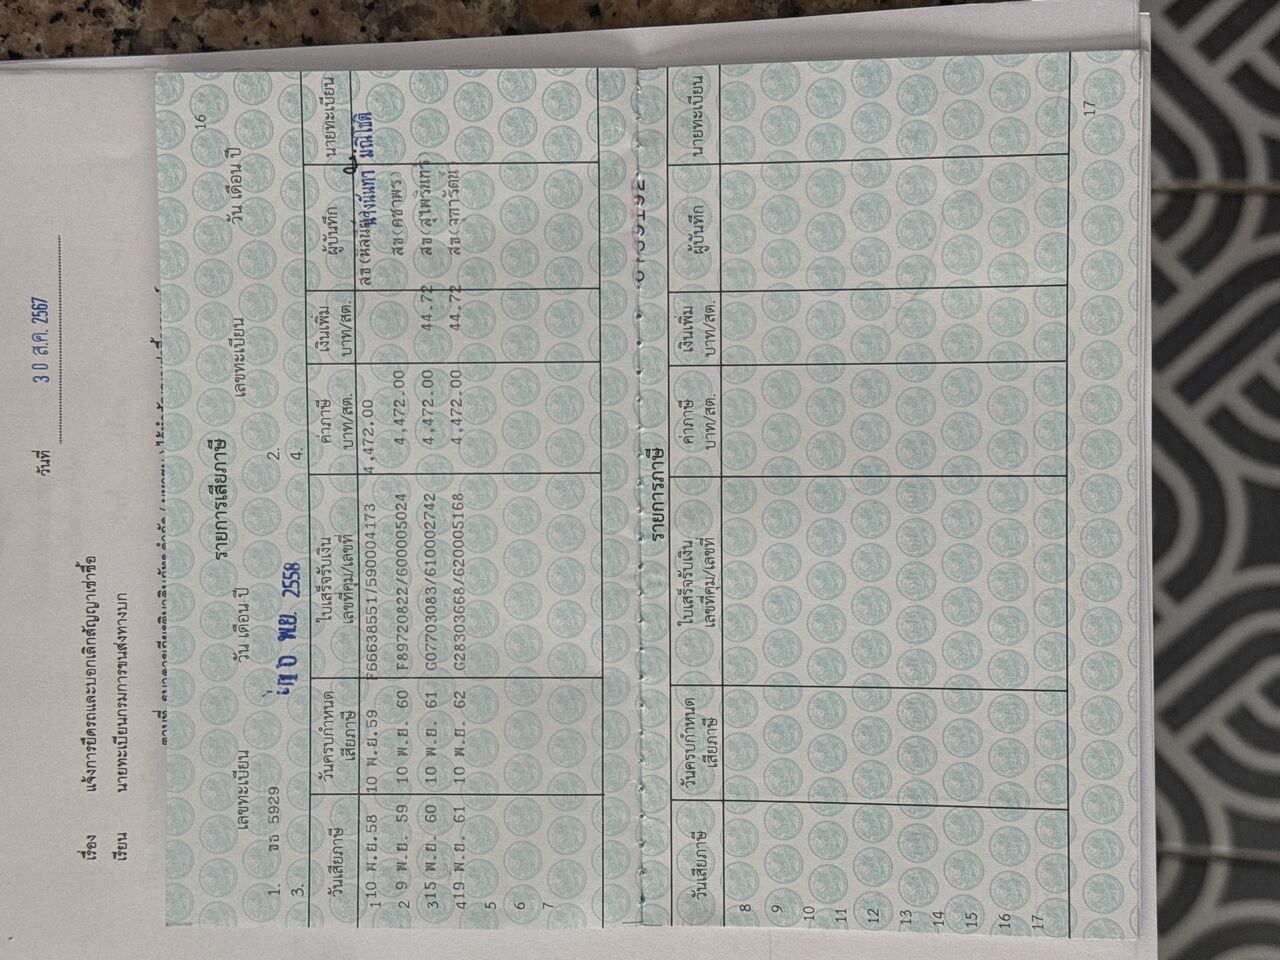 วันที่ 30 ส.ค. 2567
เรื่อง แจ้งการยึดรถและบอกเลิกสัญญาเช่าซื้อ
เรียน นายทะเบียนกรมการขนส่งทางบก
16
รายการเสียภาษี
เลขทะเบียน วัน เดือน ปี เลขทะเบียน วัน เดือน ปี
1. ขธ 5929 พ.ย. 2558 2.
3. 4.
วันเสียภาษี วันครบกำหนดเสียภาษี ใบเสร็จรับเงิน เลขที่คุม/เลขที่ ค่าภาษี บาท/สต. เงินเพิ่ม บาท/สต. ผู้บันทึก นายทะเบียน
1 10 พ.ย.58 10 พ.ย.59 F66638551/590004173 4,472.00
2 9 พ.ย. 59 10 พ.ย. 60 F89720822/600005024 4,472.00 สข(คชาพร)
3 15 พ.ย. 60 10 พ.ย. 61 G07703083/610002742 4,472.00 44.72 สข(สุไพรินทร์)
4 19 พ.ย. 61 10 พ.ย. 62 G28303668/620005168 4,472.00 44.72 สข(จุฑารัตน์)
5
6
7
รายการภาษี
วันเสียภาษี วันครบกำหนดเสียภาษี ใบเสร็จรับเงิน เลขที่คุม/เลขที่ ค่าภาษี บาท/สต. เงินเพิ่ม บาท/สต. ผู้บันทึก นายทะเบียน
8
9
10
11
12
13
14
15
16
17
17